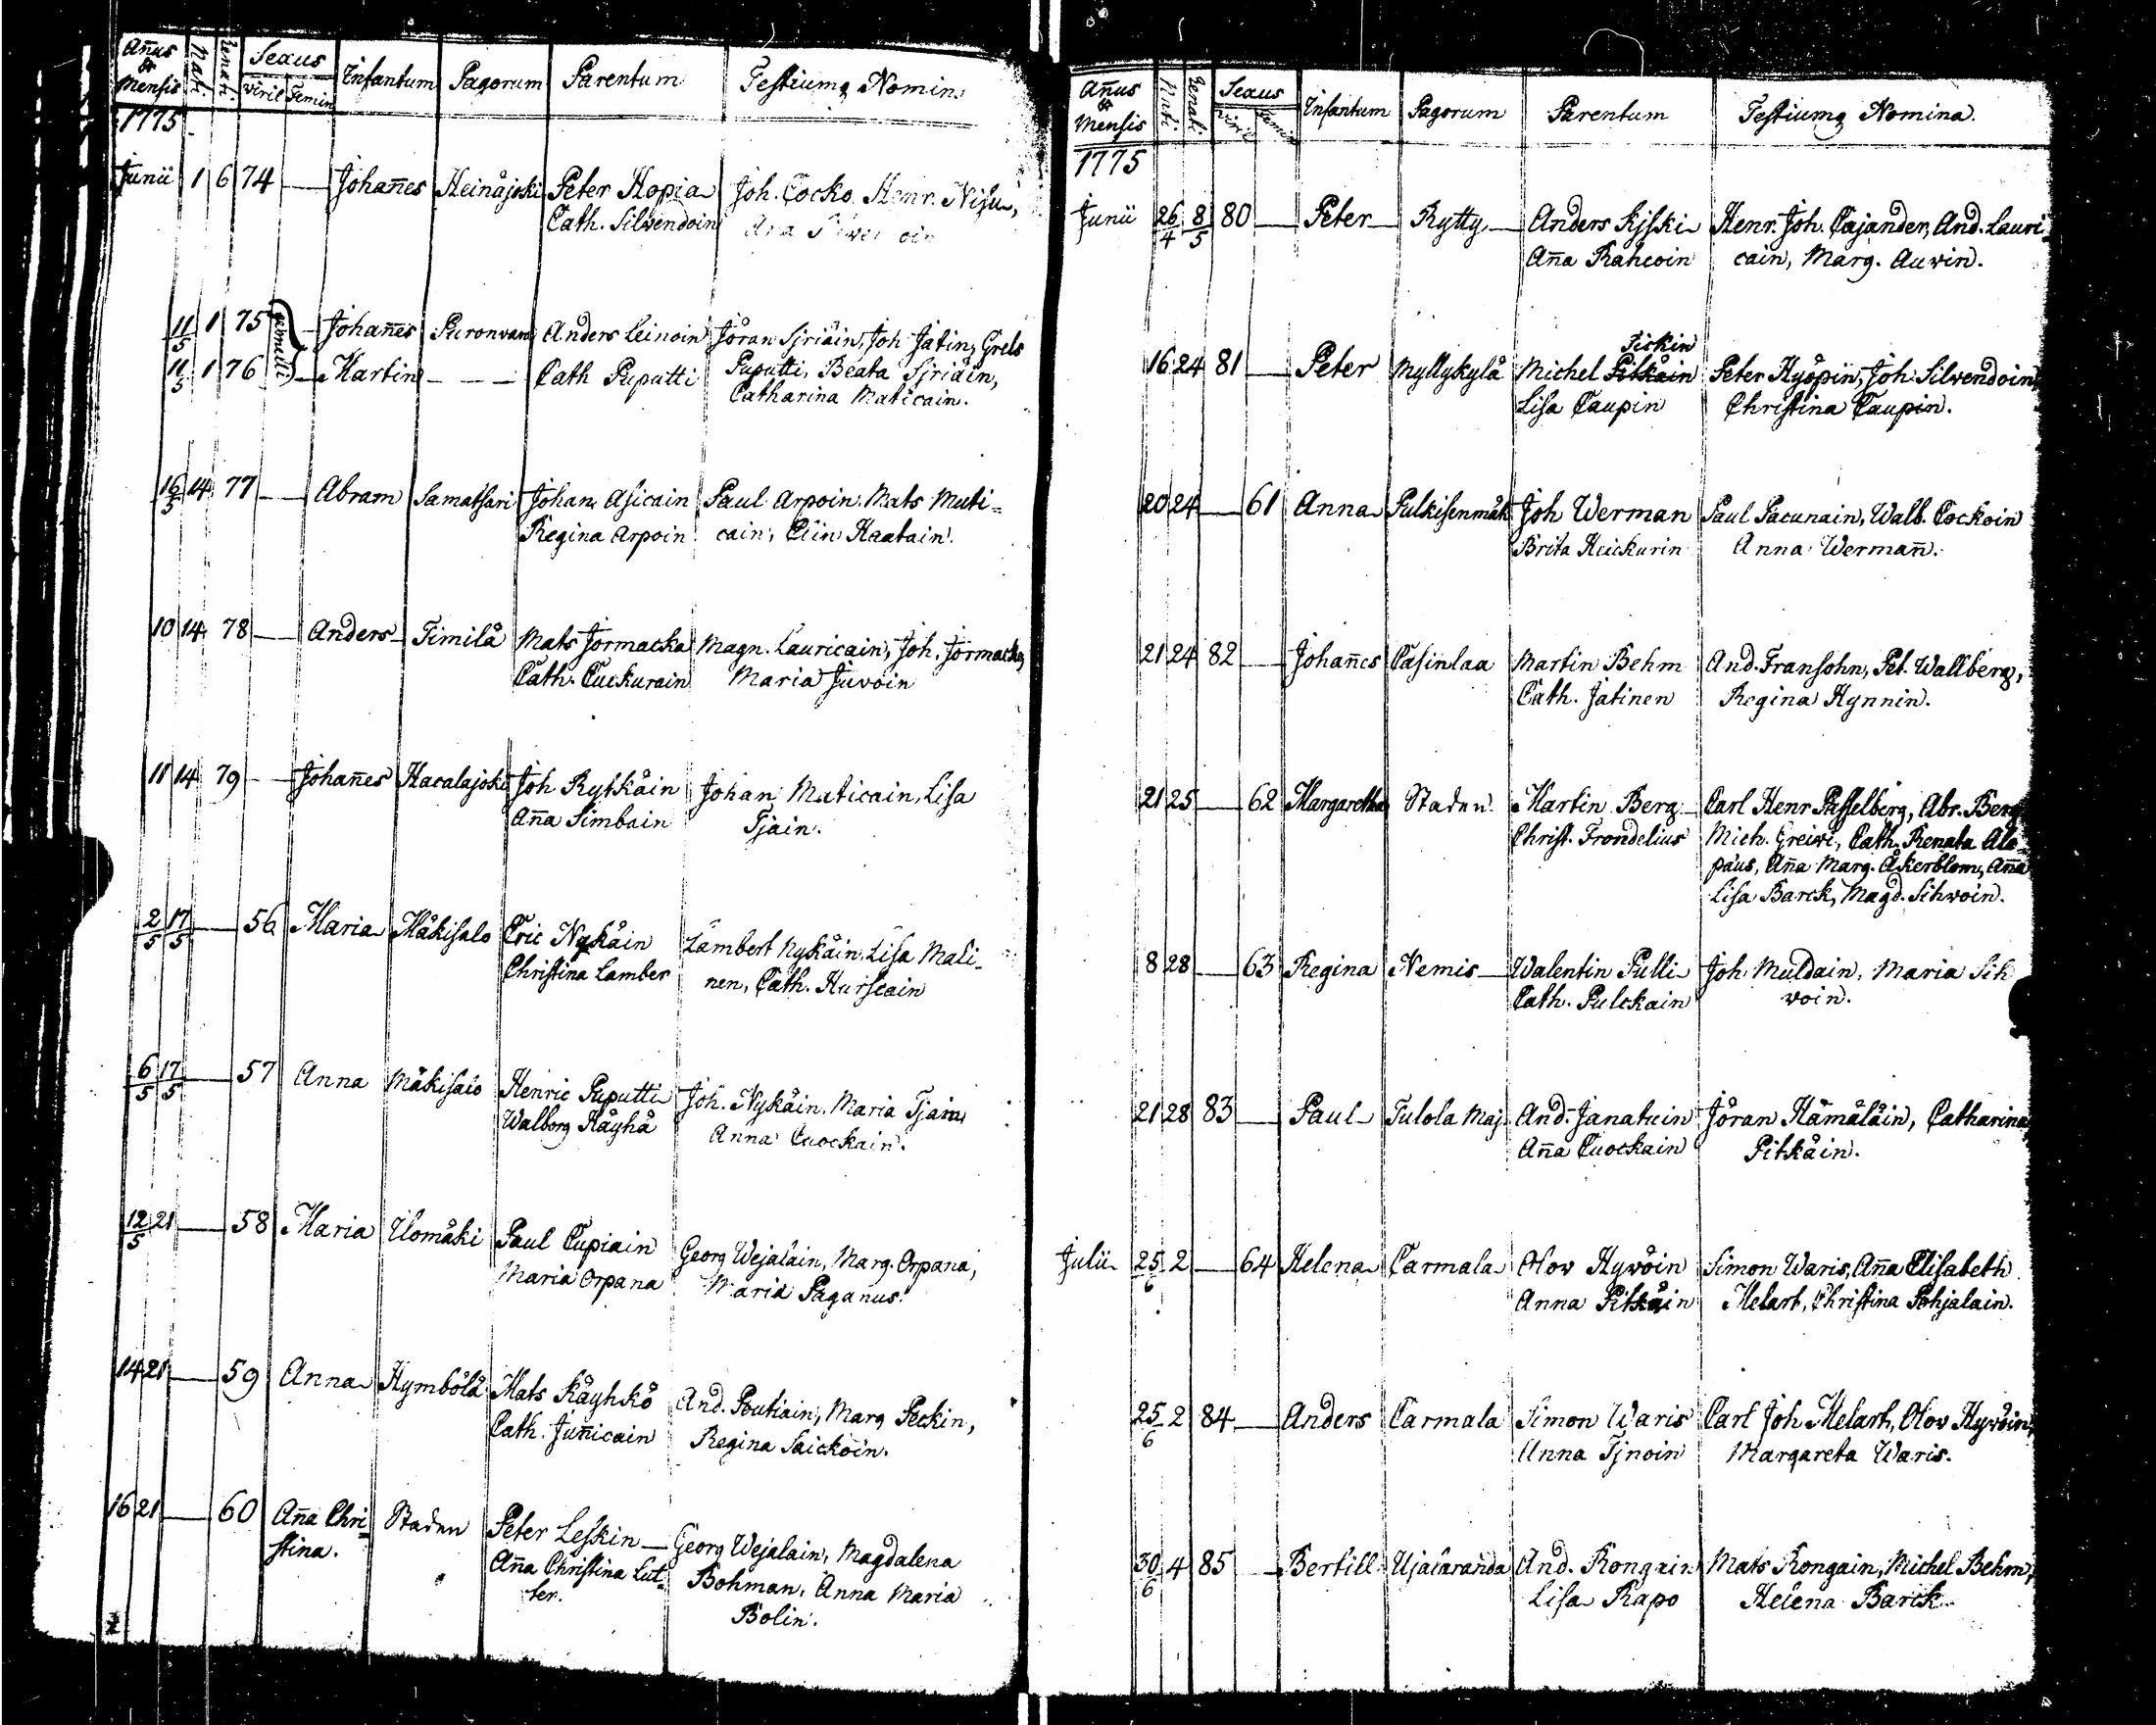 Añus & Mensis | Nati | Renati | Sexus viril Femin | Infantum | Pagorum | Parentum | Testiumq Nomin
1775
Junii 1 6 74 — Johañes Heinäjoki Peter Hopia Joh. Cocko. Henr. Nisu,
Cath. Silvendoin
11/5 1 75 gemelli — Johañes Puronvara Anders Leinoin Jöran Sjriäin, Joh Jätin, Grels
11/5 1 76 — Martin — — — Cath Puputti Puputti, Beata Sjriäin,
Catharina Maticain.
16/5 14 77 — Abram Samatsari Johan Asicain Paul Arpoin. Mats Muti=
Regina Arpoin cain, Elin Haatain.
10 14 78 — Anders Timilä Mats Jormacka Magn. Lauricain, Joh. Jormacka,
Cath. Cuckurain Maria Juvoin
11 14 79 — Johañes Hacalajoki Joh Rytkäin Johan Maticain, Lisa
Aña Simbain Tjain.
2/5 17/5 — 56 Maria Mäkisalo Eric Nykäin Lambert Nykäin. Lisa Mali-
Christina Lamber nen, Cath. Hurscain
6/5 17/5 — 57 Anna Mäkisalo Henric Puputti Joh. Nykäin. Maria Tjain,
Walborg Käyhä Anna Cuockain.
12/5 21 — 58 Maria Ulomäki Paul Cupiain Georg Wejalain, Marg. Orpana,
Maria Orpana Maria Paganus.
14 21 — 59 Anna Hymbölä Mats Käyhkö And. Poutiain, Marg Peckin,
Cath. Juñicain Regina Saickoin.
16 21 — 60 Aña Chri= Staden Peter Leskin — Georg Wejalain, Magdalena
stina. Aña Christina Lut= Bohman, Anna Maria
ter. Bolin.
Añus & Mensis | Nati | Renati | Sexus viril Femin | Infantum | Pagorum | Parentum | Testiumq Nomina.
1775
Junii 26/4 8/5 80 — Peter Rytty Anders Kjski Henr. Joh. Cajander, And. Lauri=
Aña Rahcoin cain, Marg. Auvin.
Tickin
16 24 81 — Peter Myllykylä Michel Pitkäin Peter Hyöpin, Joh. Silvendoin,
Lisa Caupin Christina Caupin.
20 24 — 61 Anna Pulkisenmäk Joh Werman Paul Pacunain, Walb. Cockoin
Brita Heickurin Anna Wermañ.
21 24 82 — Johañes Casinlaa Martin Behm And. Fransohn, Pet. Wallberg,
Cath. Jatinen Regina Hynnin.
21 25 — 62 Margaretha Staden Martin Berg Carl Henr Passelberg, Abr. Berg
Christ. Frondelius Mich. Greivi, Cath. Renata Alo=
päus, Aña Marg. Åkerblom, Aña
Lisa Barck, Magd. Sihvoin.
8 28 — 63 Regina Nemis Walentin Pulli Joh. Muldain, Maria Sih
Cath. Pulckain voin.
21 28 83 — Paul Tulola Maj. And. Janatuin Jöran Hämäläin, Catharina
Aña Cuockain Pitkäin.
Julii 25/6 2 — 64 Helena Carmala Olov Hyvöin Simon Waris, Aña Elisabeth
Anna Pitkäin Melart, Christina Pohjalain.
25/6 2 84 — Anders Carmala Simon Waris Carl Joh Melart, Olov Hyvöin,
Anna Tjnoin Margareta Waris.
30/6 4 85 — Bertill Ujacaranda And. Rongain Mats Rongain, Michel Behm,
Lisa Rapo Helena Barck